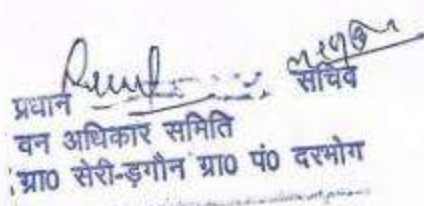 प्रधान सचिव
वन अधिकार समिति
ग्रा0 सेरी-ड़गौन ग्रा0 पं0 दरभोग